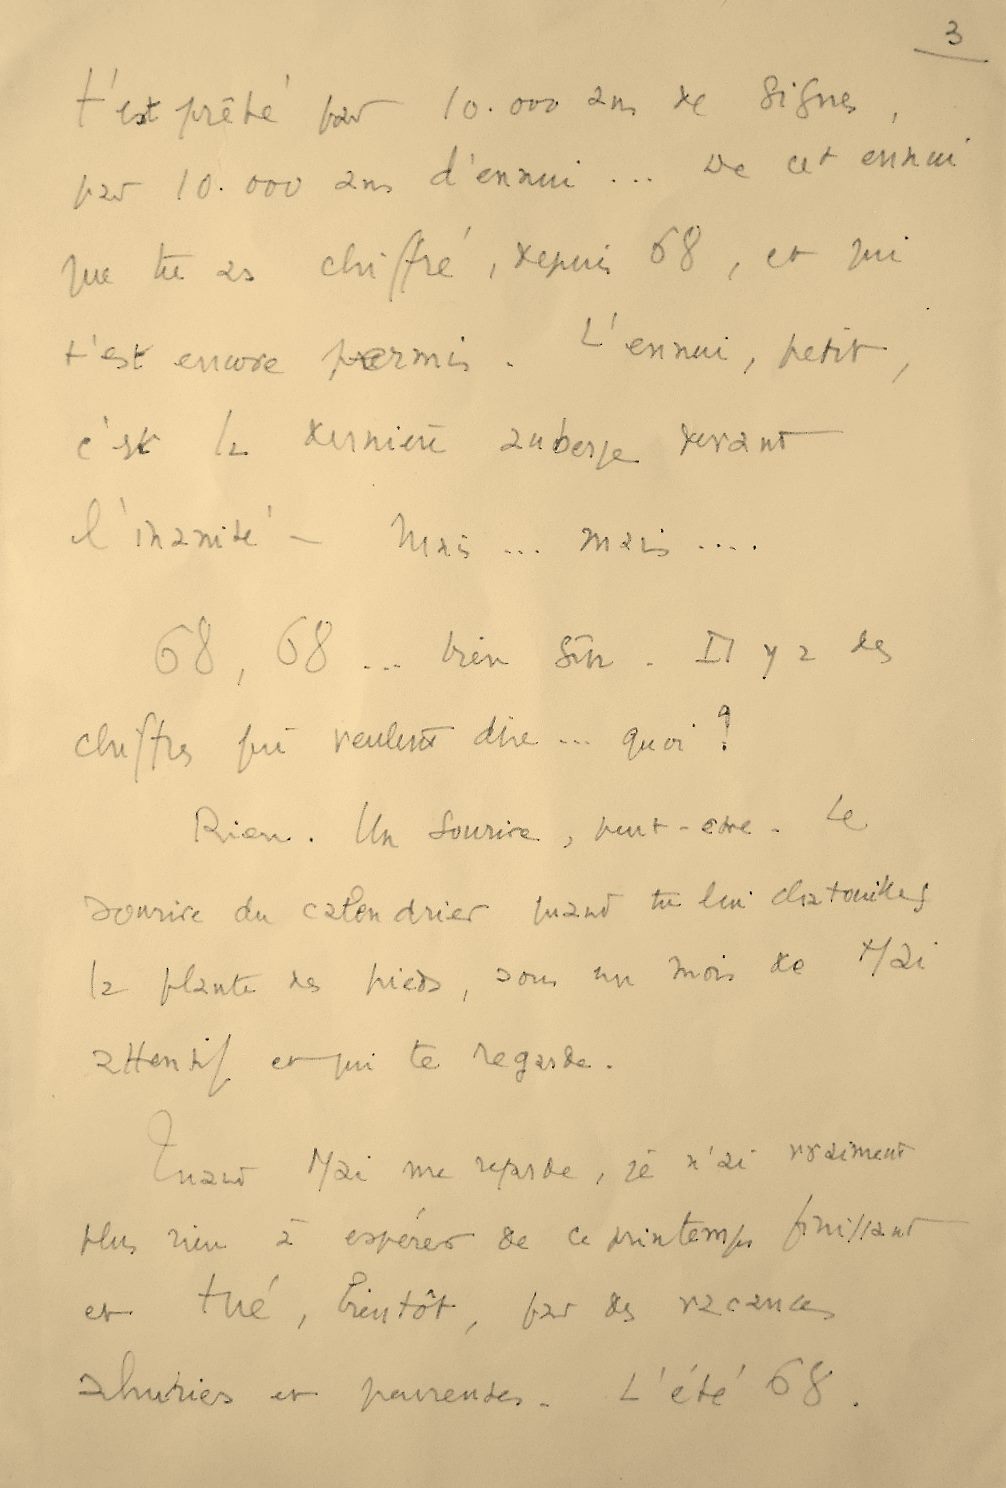 3
t'est prêté par 10.000 ans de Signes,
par 10.000 ans d'ennui ... De cet ennui
que tu as chiffré, depuis 68, et qui
t'est encore permis. L'ennui, petit,
c'est la dernière auberge devant
l'inanité — Mais ... mais ....
68, 68 ... bien sûr. Il y a des
chiffres qui veulent dire ... quoi ?
Rien. Un Sourire, peut-être. Le
sourire du calendrier quand tu lui chatouilles
la plante des pieds, sous un mois de Mai
attentif et qui te regarde.
Quand Mai me regarde, je n'ai vraiment
plus rien à espérer de ce printemps finissant
et tué, bientôt, par des vacances
ahuries et peureuses. L'été 68.